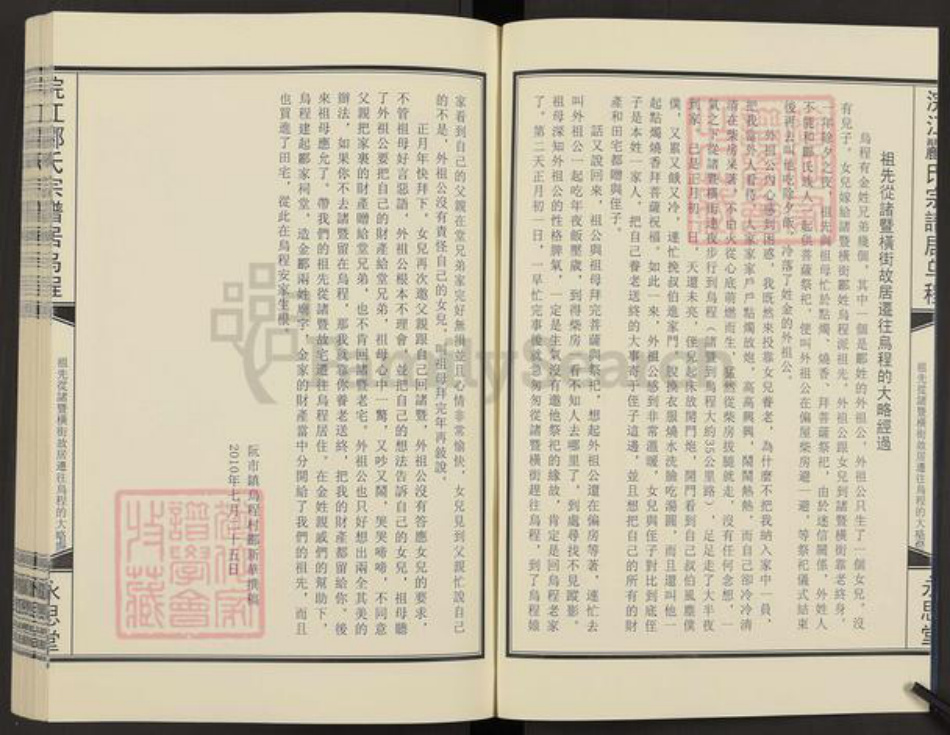 祖先從諸暨橫街故居遷往烏程的大略經過
烏程有金姓兄弟幾個，其中一個是酈姓的外祖公，外祖公只生了一個女兒，沒
有兒子。女兒嫁給諸暨橫街酈姓烏程派祖先。外祖公跟女兒到諸暨橫街靠老終身，
一年除夕之夜，祖先與祖母忙於點燭、燒香、拜菩薩祭祀，由於迷信關係，外姓人
不能和酈氏族人一起供菩薩祭祀，便叫外祖公在偏屋柴房避一避，等祭祀儀式結束
後再去叫他吃除夕飯，冷落了姓金的外祖公。
外祖公內心感到困惑，我既然來投靠女兒養老，為什麼不把我納入家中一員，
把我當外人看待，人家家家戶戶點燭放炮，高高興興，鬧鬧熱熱，而自己卻冷冷清
清在柴房呆著，不由火從心底萌燃而生，猛然從柴房拔腿就走，沒有任何念想，一
氣之下從諸暨橫街連夜步行到烏程（諸暨到烏程大約35公里路），足足走了大半夜
到家，已是正月初一日，天還未亮，侄兒起床放開門炮，開門看到自己叔伯風塵僕
僕，又累又餓又冷，連忙挽叔伯進家門，脫換衣服燒水洗臉吃湯圓，而且還叫他一
起點燭燒香拜菩薩祝福。如此一來，外祖公感到非常溫暖，女兒與侄子對比到底侄
子是本姓一家人，把自己養老送終的大事寄于侄子這邊，並且想把自己的所有的財
產和田宅都贈與侄子。
話又說回來，祖公與祖母拜完菩薩與祭祀，想起外祖公還在偏房等著，連忙去
叫外祖公一起吃年夜飯壓歲，到得柴房一看不知人去哪里了，到處尋找不見蹤影。
祖母深知外祖公的性格脾氣，一定是生氣沒有邀他祭祀的緣故，肯定是回烏程老家
了。第二天正月初一日，一早忙完事後就急匆匆從諸暨橫街趕往烏程，到了烏程娘
家看到自己的父親在堂兄弟家完好無損並且心情非常愉快，女兒見到父親忙說自己
的不是，外祖公沒有責怪自己的女兒，叫祖母拜完年再敍說。
正月年快拜下，女兒再次邀父親跟自己回諸暨，外祖公沒有答應女兒的要求，
不管祖母好言惡語，外祖公根本不理會，並把自己的想法告訴自己的女兒，祖母聽
了外祖公要把自己的財產給堂兄弟，祖母心中一驚，又吵又鬧，哭哭啼啼，不同意
父親把家裏的財產贈給堂兄弟，也不肯回諸暨老宅。外祖公也只好想出兩全其美的
辦法，如果你不去諸暨留在烏程，那我就靠你養老送終，把我的財產都留給你。後
來祖母應允了。帶我們的祖先從諸暨故宅遷往烏程居住。在金姓親戚們的幫助下，
烏程建起酈家祠堂，造金酈兩姓廟宇，金家的財產當中分開給了我們的祖先，而且
也買進了田宅，從此在烏程安家生根。
阮市鎮烏程村酈新華撰稿
2010年七月二十五日
浣江酈氏宗譜居烏程
祖先從諸暨橫街故居遷往烏程的大略
永思堂
FamilySearch